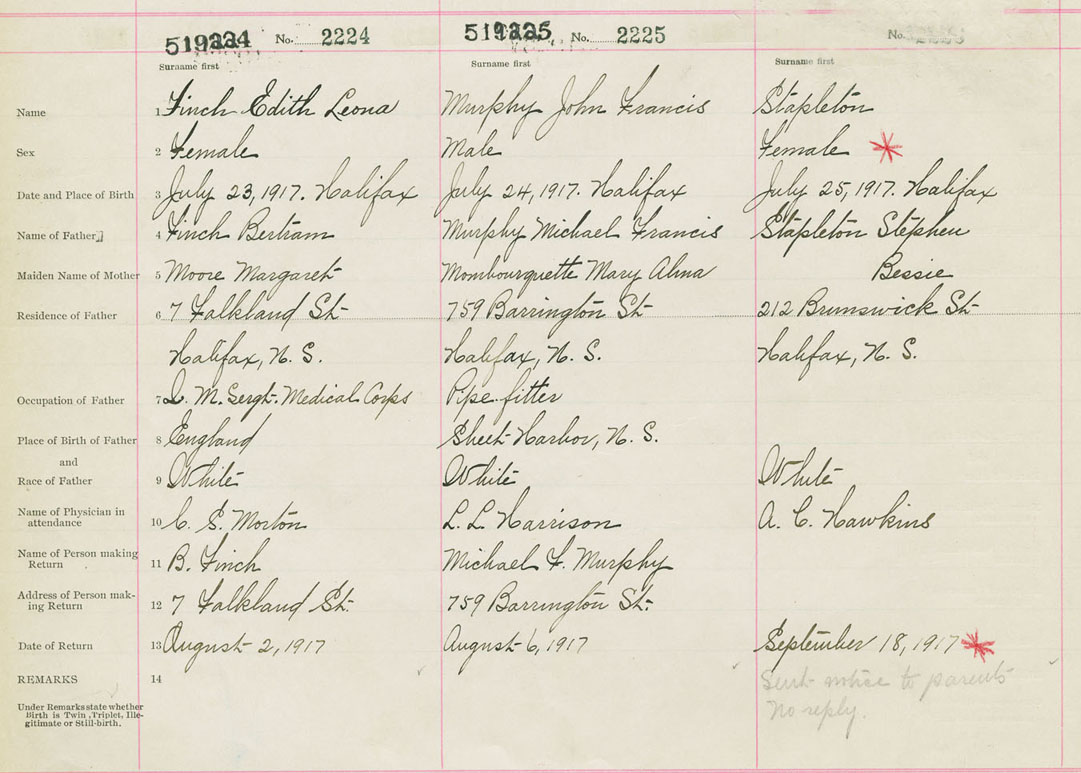 519224 No. 2224
519225 No. 2225
No.
Surname first Surname first Surname first
Name 1 Finch Edith Leona Murphy John Francis Stapleton
Sex 2 Female Male Female
Date and Place of Birth 3 July 23, 1917. Halifax July 24, 1917. Halifax July 25, 1917. Halifax
Name of Father 4 Finch Bertram Murphy Michael Francis Stapleton Stephen
Maiden Name of Mother 5 Moore Margaret Mombourquette Mary Alma Bessie
Residence of Father 6 7 Falkland St 759 Barrington St 212 Brunswick St
Halifax, N. S. Halifax, N. S. Halifax, N. S.
Occupation of Father 7 Q. M. Sergt. Medical Corps Pipe fitter
Place of Birth of Father 8 England Sheet Harbor, N. S.
and
Race of Father 9 White White White
Name of Physician in
attendance 10 C. S. Morton L. L. Harrison A. C. Hawkins
Name of Person making
Return 11 B. Finch Michael F. Murphy
Address of Person mak-
ing Return 12 7 Falkland St. 759 Barrington St.
Date of Return 13 August 2, 1917 August 6, 1917 September 18, 1917
REMARKS 14 Sent notice to parents
No reply.
Under Remarks state whether
Birth is Twin, Triplet, Ille-
gitimate or Still-birth.